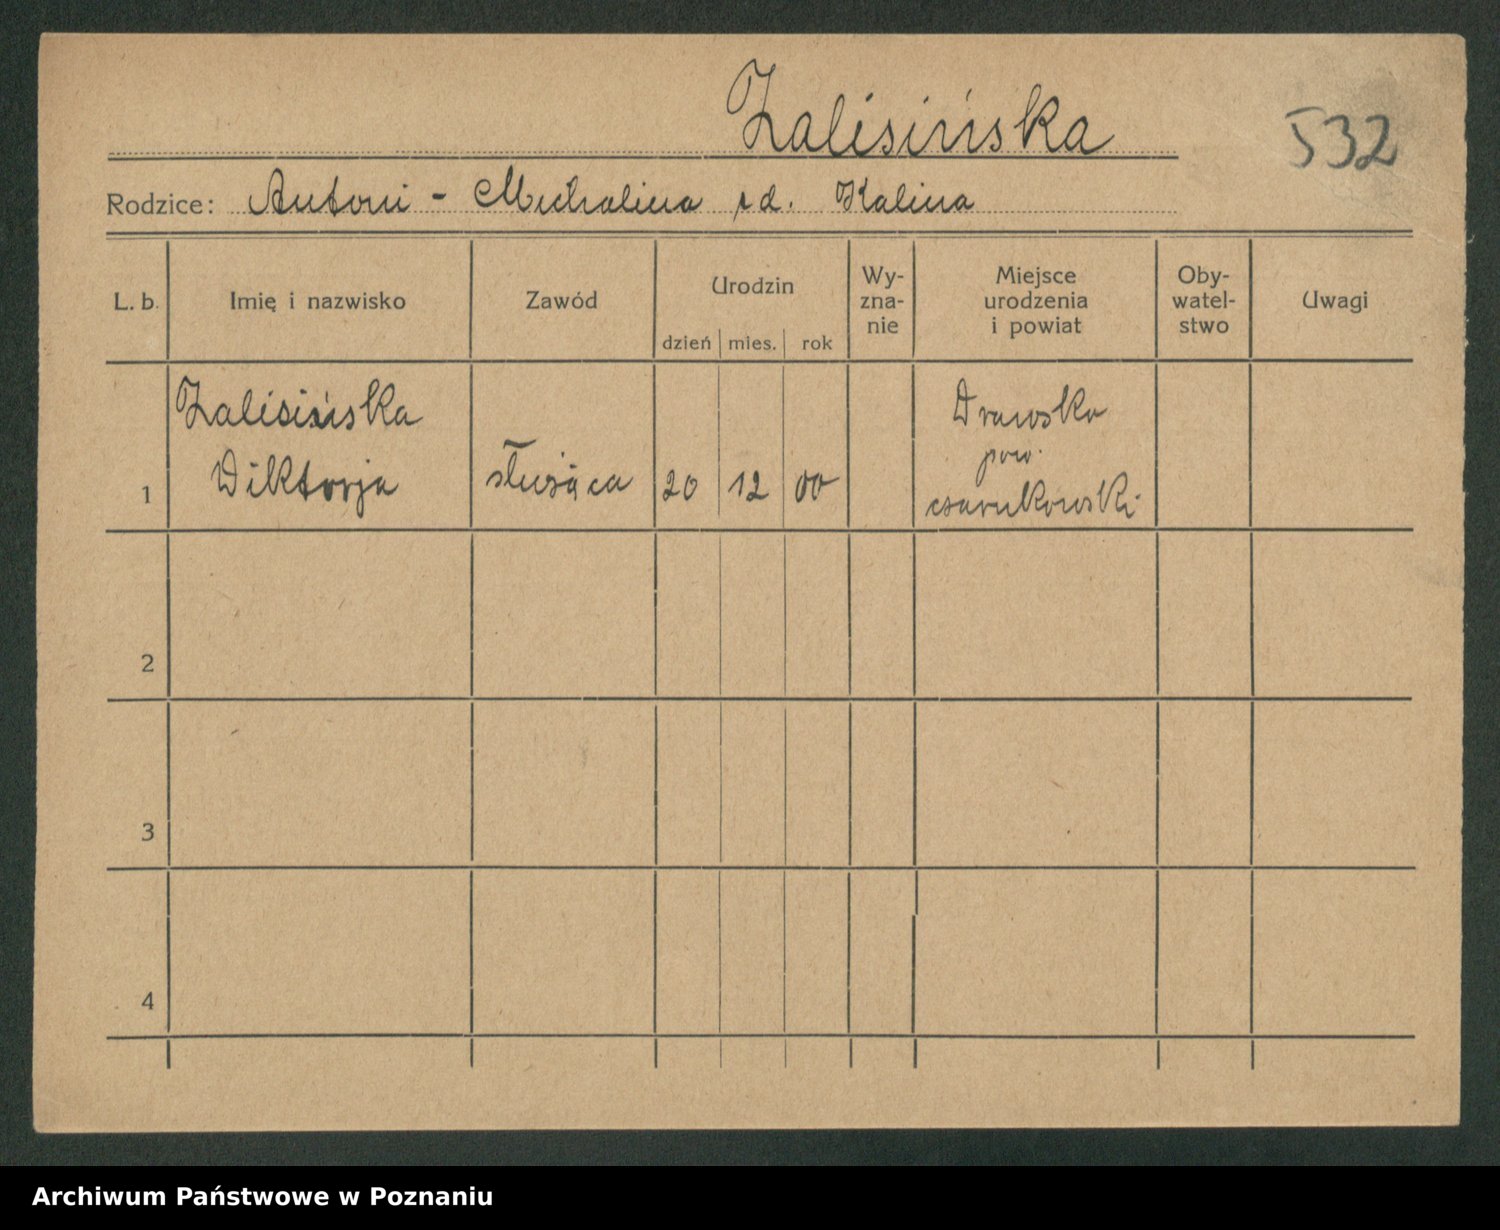 Zalisińska
532
Rodzice: Antoni - Michalina rd. Kalina
L. b.
Imię i nazwisko
Zawód
Urodzin
dzień
mies.
rok
Wy-
zna-
nie
Miejsce
urodzenia
i powiat
Oby-
watel-
stwo
Uwagi
1
Zalisińska
Wiktorja
służąca
20
12
00
Drawsko
pow.
czarnkowski
2
3
4
Archiwum Państwowe w Poznaniu